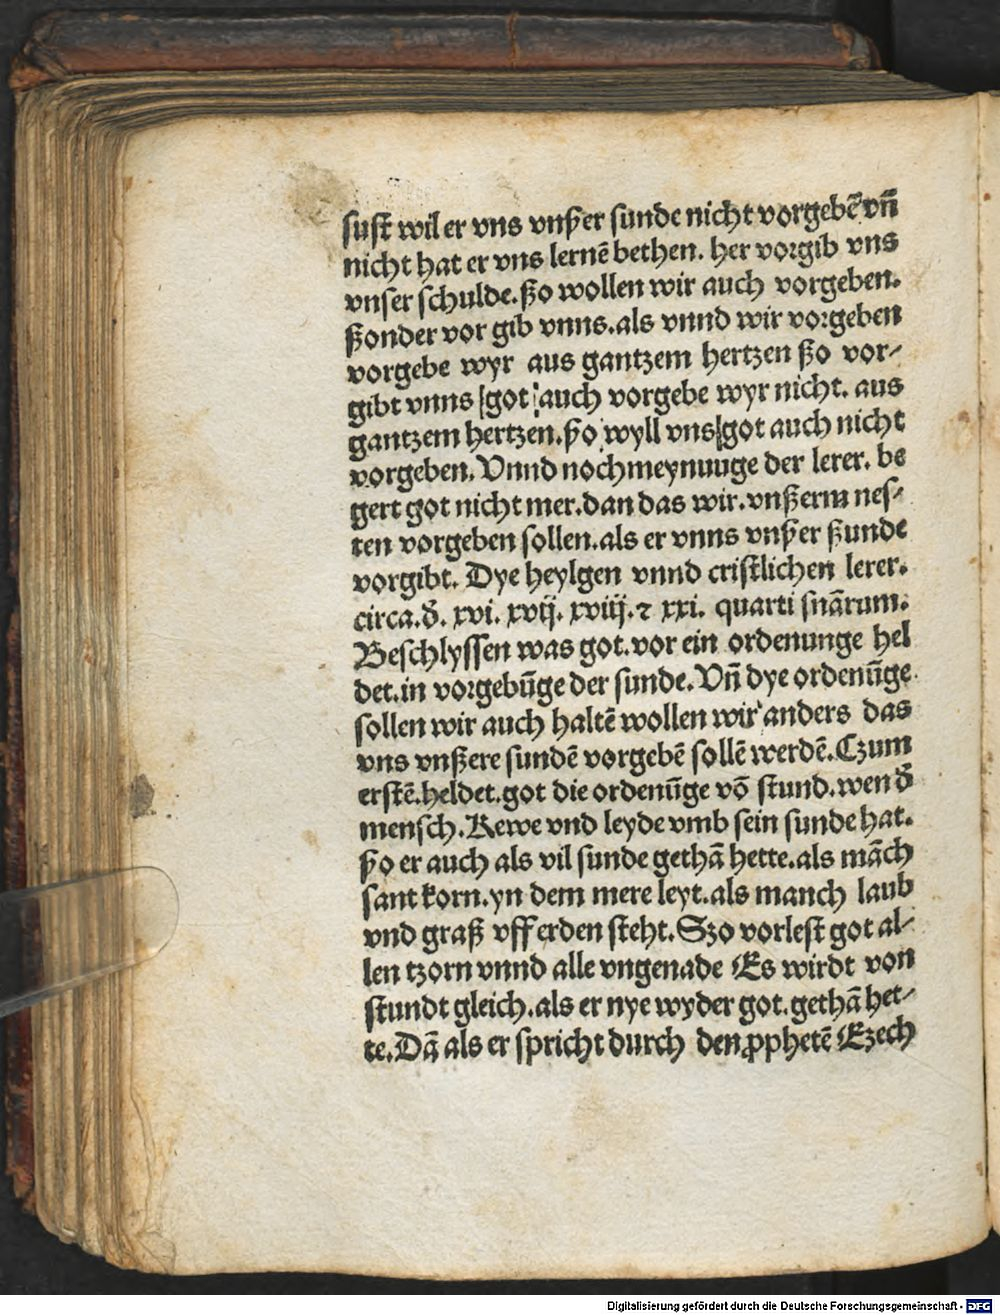 sust wil er vns vnßer sunde nicht vorgebē vn̄
nicht hat er vns lernē bethen. her vorgib vns
vnser schulde. ßo wollen wir auch vorgeben.
ßonder vor gib vnns. als vnnd wir vorgeben
vorgebe wyr aus gantzem hertzen ßo vor-
gibt vnns got auch vorgebe wyr nicht. aus
gantzem hertzen. ßo wyll vns got auch nicht
vorgeben. Vnnd noch meynuuge der lerer. be
gert got nicht mer. dan das wir. vnßerm nes-
ten vorgeben sollen. als er vnns vnßer ßunde
vorgibt. Dye heylgen vnnd cristlichen lerer.
circa. d̄. xvi. xvij. xviij. ⁊ xxi. quarti snārum.
Beschlyssen was got. vor ein ordenunge hel
det. in vorgebūge der sunde. Vn̄ dye ordenūge
sollen wir auch haltē wollen wir anders das
vns vnßere sundē vorgebē sollē werdē. Czum
erstē. heldet. got die ordenūge vō stund. wen d̄
mensch. Rewe vnd leyde vmb sein sunde hat.
ßo er auch als vil sunde gethā hette. als māch
sant korn. yn dem mere leyt. als manch laub
vnd graß vff erden steht. Szo vorlest got al-
len tzorn vnnd alle vngenade Es wirdt von
stundt gleich. als er nye wyder got. gethā het-
te. Dā als er spricht durch den ꝓphetē Ezech
Digitalisierung gefördert durch die Deutsche Forschungsgemeinschaft - DFG